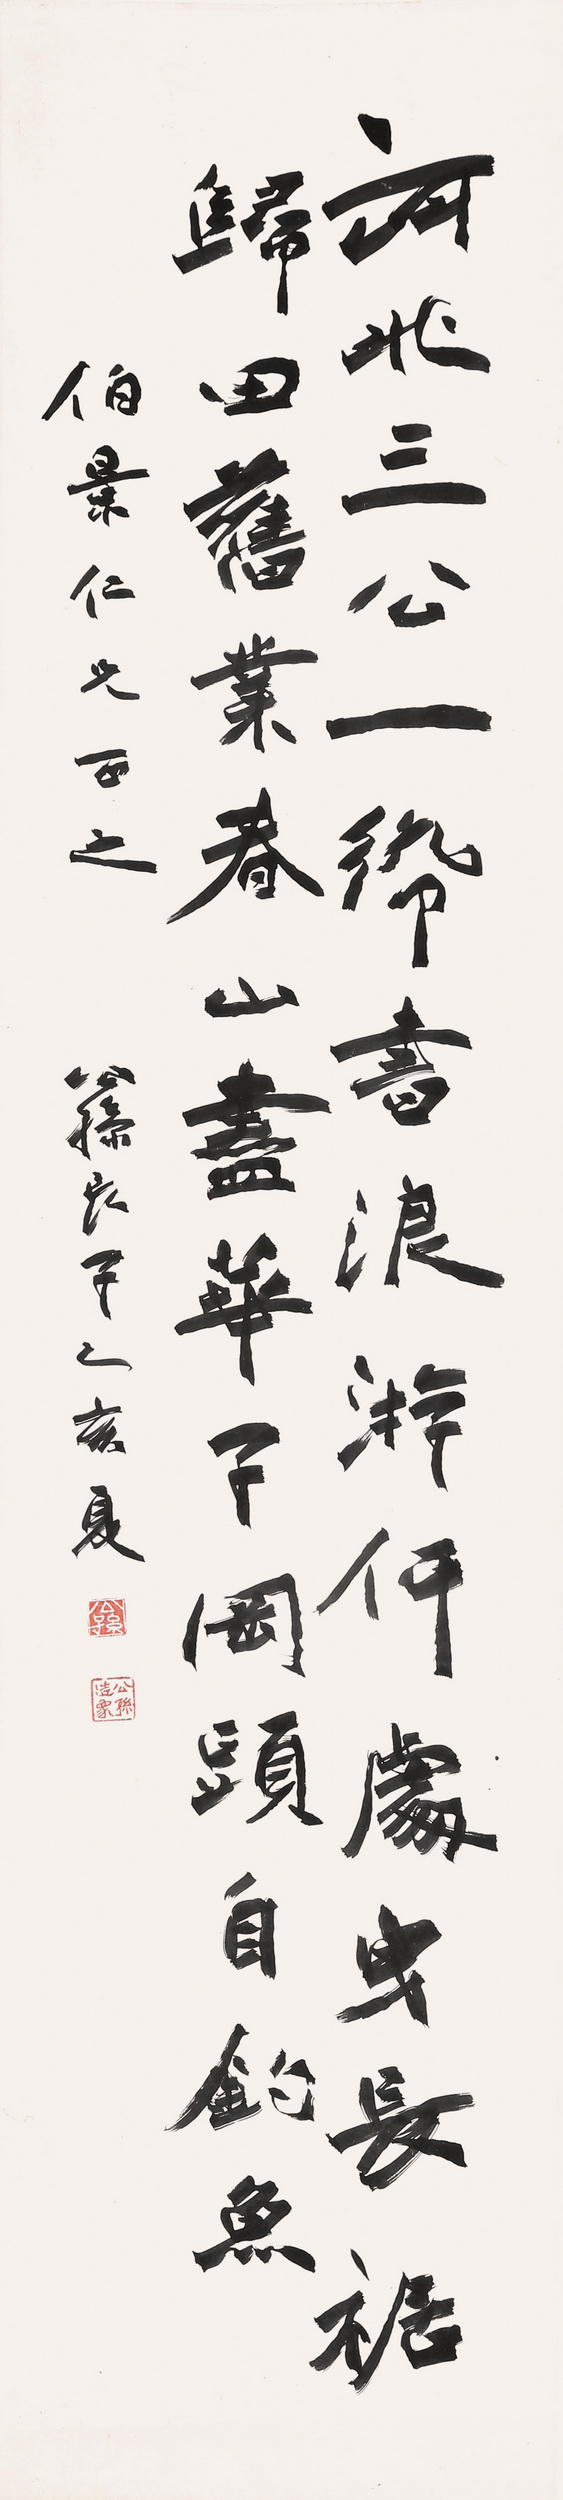 河北三公一紙書浪游何處曳長裾
歸田舊業春山盡華子岡頭自釣魚
伯景仁兄之
公孫長子乙亥夏
公孫
公孫